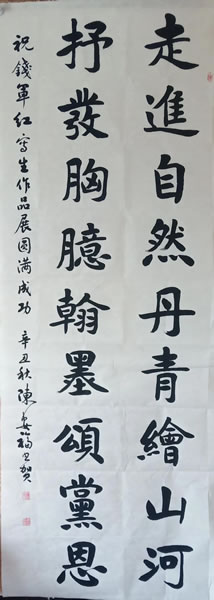 走進自然丹青繪山河
抒發胸臆翰墨頌黨恩
祝錢軍紅寫生作品展圓满成功 辛丑秋陳福賀